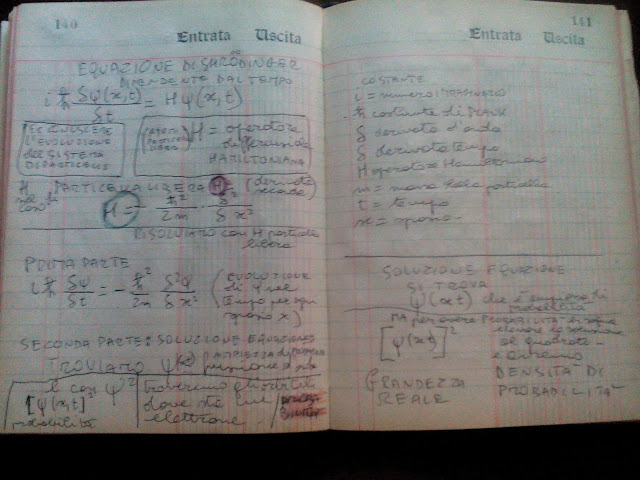 140
Entrata Uscita
EQUAZIONE DI SHRÖDINGER
DIPENDENTE DAL TEMPO
i ħ δψ(x,t)/δt = H ψ(x,t)
L'EVOLUZIONE
DEL SISTEMA
H = operatore
HAMILTONIANA
PARTICELLA LIBERA H = (derivata
seconda)
H = - ħ²/2m δ²/δx²
RISOLVIAMO con H particella
libera
PRIMA PARTE
i ħ δψ/δt = - ħ²/2m δ²ψ/δx²
(EVOLUZIONE
di ψ nel
tempo per ogni
spazio x)
SECONDA PARTE: SOLUZIONE EQUAZIONE
TROVIAMO ψ(x)
[ψ(x,t)]²
probabilità
troveremo gli orbitali
dove sta un
elettrone
141
Entrata Uscita
COSTANTE
i = numero IMMAGINARIO
ħ costante di PLANK
δ derivata d'onda
δ derivata tempo
H operatore Hamiltoniano
m = massa della particella
t = tempo
x = spazio
SOLUZIONE EQUAZIONE
SI TROVA
ψ(xt) che è
MA per avere PROBABILITÀ
elevare la soluzione
al quadrato
[ψ(xt)]²
e avremo
DENSITÀ DI
PROBABILITÀ
GRANDEZZA
REALE